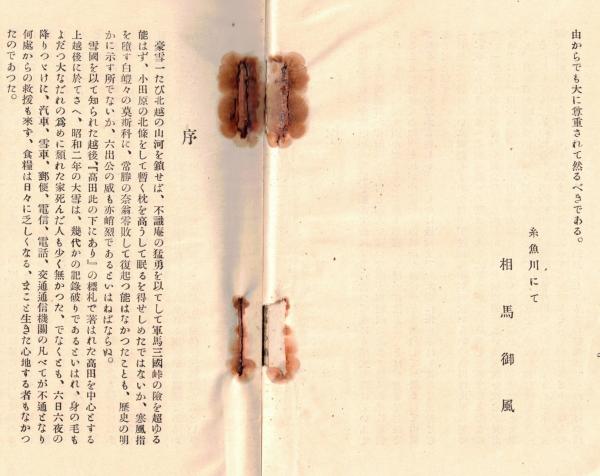 由からでも大に尊重されて然るべきである。
糸魚川にて
相馬御風
序
豪雪一たび北越の山河を鎖せば、不識庵の猛勇を以てして軍馬三國峠の險を超ゆる
能はず、小田原の北條をして暫く枕を高うして眠るを得せしめたではないか、寒風指
を墮す白皚々の莫斯科に、常勝の奈翁零敗して復起つ能はなかつたことも、歴史の明
かに示す所でないか、六出公の威も亦峭烈であるといはねばならぬ。
雪國を以て知られた越後、『高田此の下にあり』の標札で著はれた高田を中心とする
上越後に於てさへ、昭和二年の大雪は、幾代かの記錄破りであるといはれ、身の毛も
よだつ大なだれの爲めに頽れた家死んだ人も少く無かつた、でなくとも、六日六夜の
降りつゞけに、汽車、雪車、郵便、電信、電話、交通通信機關の凡べてが不通となり
何處からの救援も來ず、食糧は日々に乏しくなる、まこと生きた心地する者もなかつ
たのであつた。